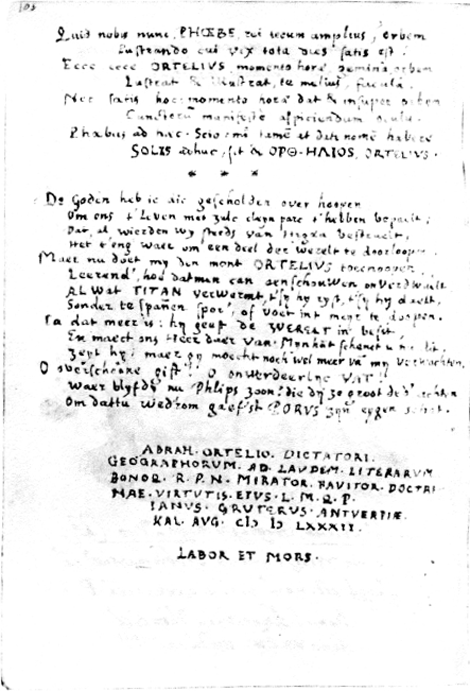 103
Quid nobis nunc, PHŒBE, rei tecum amplius, orbem
Lustrando cui vix tota dies satis est?
Ecce ORTELIUS momento horæ, gemina orbem
Lustrat & illustrat, te melius, facula.
Nec satis hoc: momento horæ dat & insuper orbem
manifestè aspiciendum
Phœbus ad hæc. Scio: mi tamē et datē nomē habere
SOLIS adhuc, sit & ΟΡΘ-ΗΛΙΟΣ, ORTELIUS.
* * *
De Goden heb ic gescholden over hoopen
Om ons t'leven met zulc cleyn pare t'hebben bepaelt;
Dar, al wierden wy steeds van bestraelt,
Het t'eng waer om een deel der werelt te doorloopen.
Maer nu doet my den mont ORTELIUS toenoopen
Leerend, hoe datmen can aenschouwen onverdwaelt
AL Wat TITAN verwermt, t'sy hy ryst, t'sy hy daelt,
Sonder te spanen spoor, of voet int
Ja dat meer is: hy geeft de WERELT in besit
En maect ons Heer daer van. Monhêt schenct u
Zeyt hy: maer gy moecht noch wel meer vā my verwachten.
O overschoone gift! O onwerdeerlyc VAT!
Waer blyfdy nu Phlips zoon? die dy zo groot
Om dattu wedrom gaef'st PORUS zyn eygen
ABRAH. ORTELIO. DICTATORI.
GEOGRAPHORUM. AD LAUDEM. LITERARUM
BONOR. R. P. N. MIRATOR. FAVITOR. DOCTRI
NAE. VIRTUTIS. EIUS. L. M. Q. P.
IANUS. GRUTERUS. ANTVERPIÆ.
KAL. AUG. CIↃ IↃ LXXXII.
LABOR ET MORS.